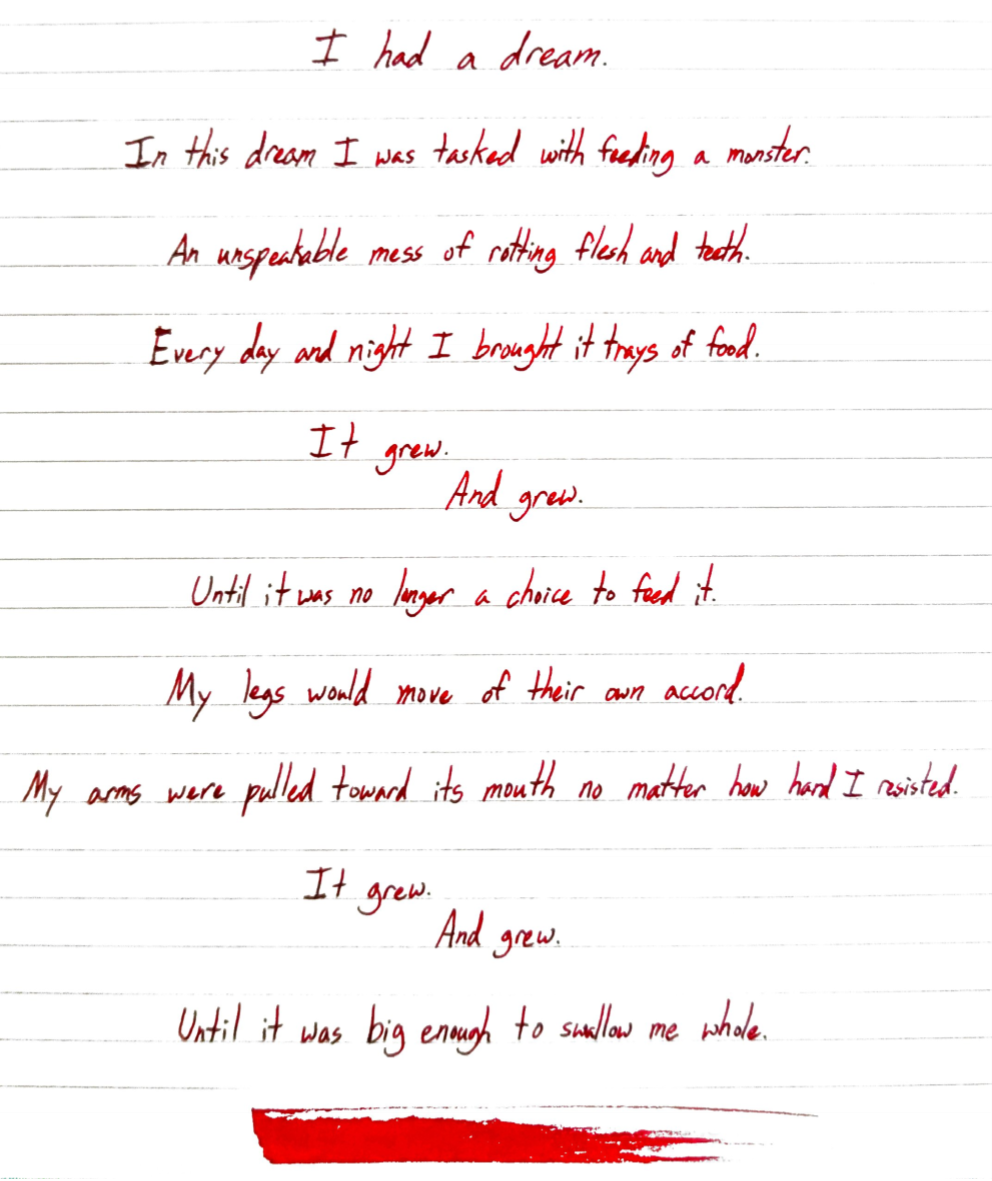 I had a dream.
In this dream I was tasked with feeding a monster.
An unspeakable mess of rotting flesh and teeth.
Every day and night I brought it trays of food.
It grew.
And grew.
Until it was no longer a choice to feed it.
My legs would move of their own accord.
My arms were pulled toward its mouth no matter how hard I resisted.
It grew.
And grew.
Until it was big enough to swallow me whole.